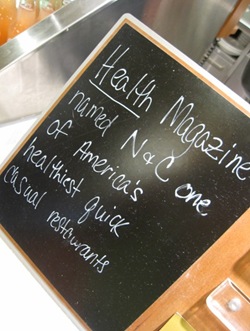 Health Magazine
named N&C one
of America's
healthiest quick
casual restaurants